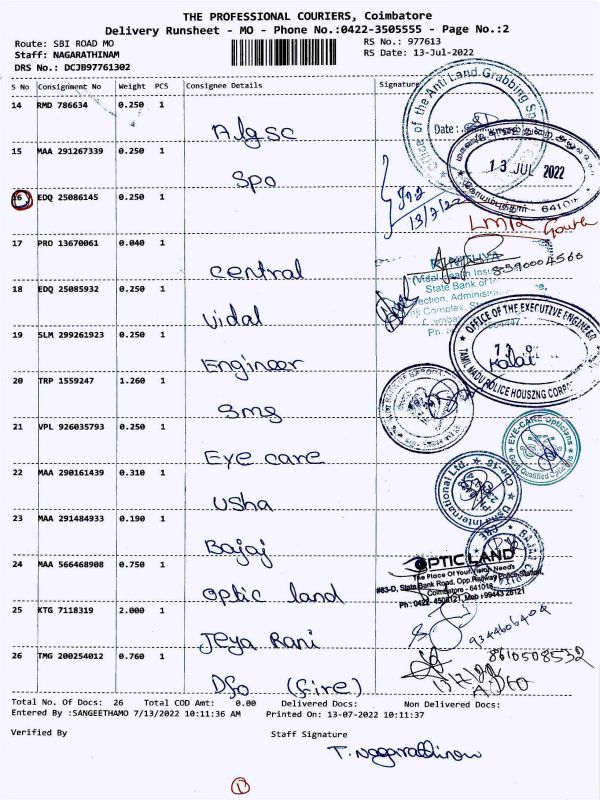 THE PROFESSIONAL COURIERS, Coimbatore
Delivery Runsheet - MO - Phone No.:0422-3505555 - Page No.:2
Route: SBI ROAD MO
RS No.: 977613
Staff: NAGARATHINAM
RS Date: 13-Jul-2022
DRS No.: DCJB97761302
S No Consignment No Weight PCS Consignee Details Signature
14 RMD 786634 0.250 1
Algsc
15 MAA 291267339 0.250 1
Spo
16 EDQ 25086145 0.250 1
17 PRO 13670061 0.040 1
Central
18 EDQ 25085932 0.250 1
Vidal
19 SLM 299261923 0.250 1
Engineer
20 TRP 1559247 1.260 1
Sms
21 VPL 926035793 0.250 1
Eye care
22 MAA 290161439 0.310 1
Usha
23 MAA 291484933 0.190 1
Bajaj
24 MAA 566468908 0.750 1
Optic land
25 KTG 7118319 2.000 1
Jeya Rani
26 TMG 200254012 0.760 1
Dfo (fire)
Office of the Anti Land Grabbing
Date :
13 JUL 2022
13/7/22
State Bank of
OFFICE OF THE EXECUTIVE ENGINEER
TAMIL NADU POLICE HOUSZNG CORP
EYE-CARE Opticians
Usha International Ltd.
OPTIC LAND
The Place Of Your Vision Needs
#83-D, State Bank Road, Opp.Railway Police Station,
Coimbatore - 641018
8610508532
Total No. Of Docs: 26 Total COD Amt: 0.00 Delivered Docs: Non Delivered Docs:
Entered By :SANGEETHAMO 7/13/2022 10:11:36 AM Printed On: 13-07-2022 10:11:37
Verified By Staff Signature